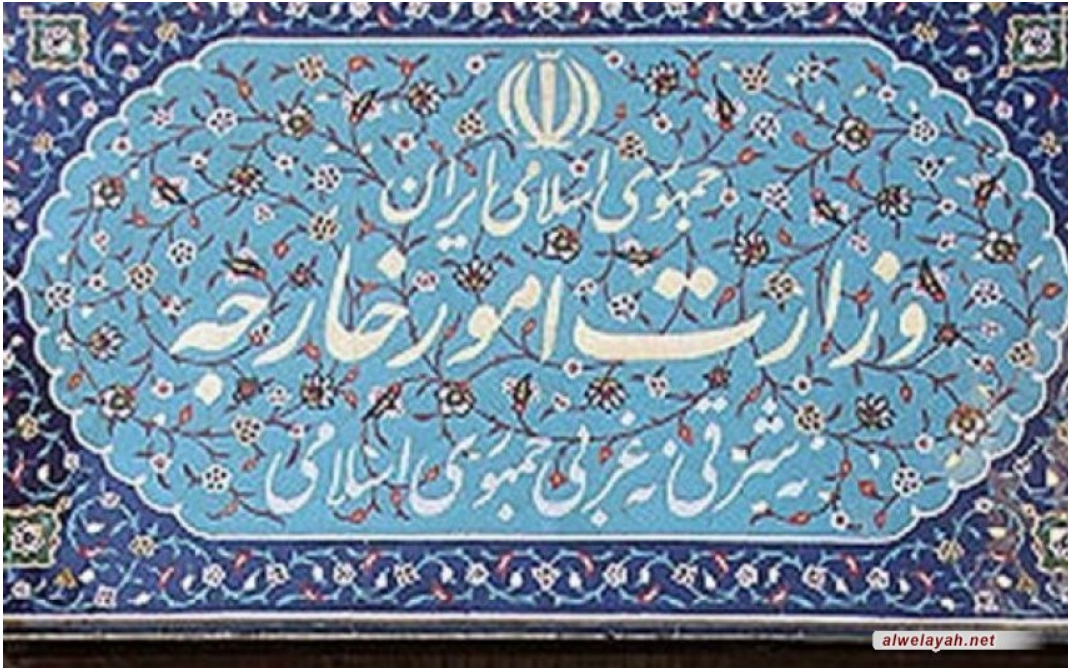 جمهوری اسلامی ایران
وزارت امور خارجه
نه شرقی نه غربی جمهوری اسلامی
alwelayah.net